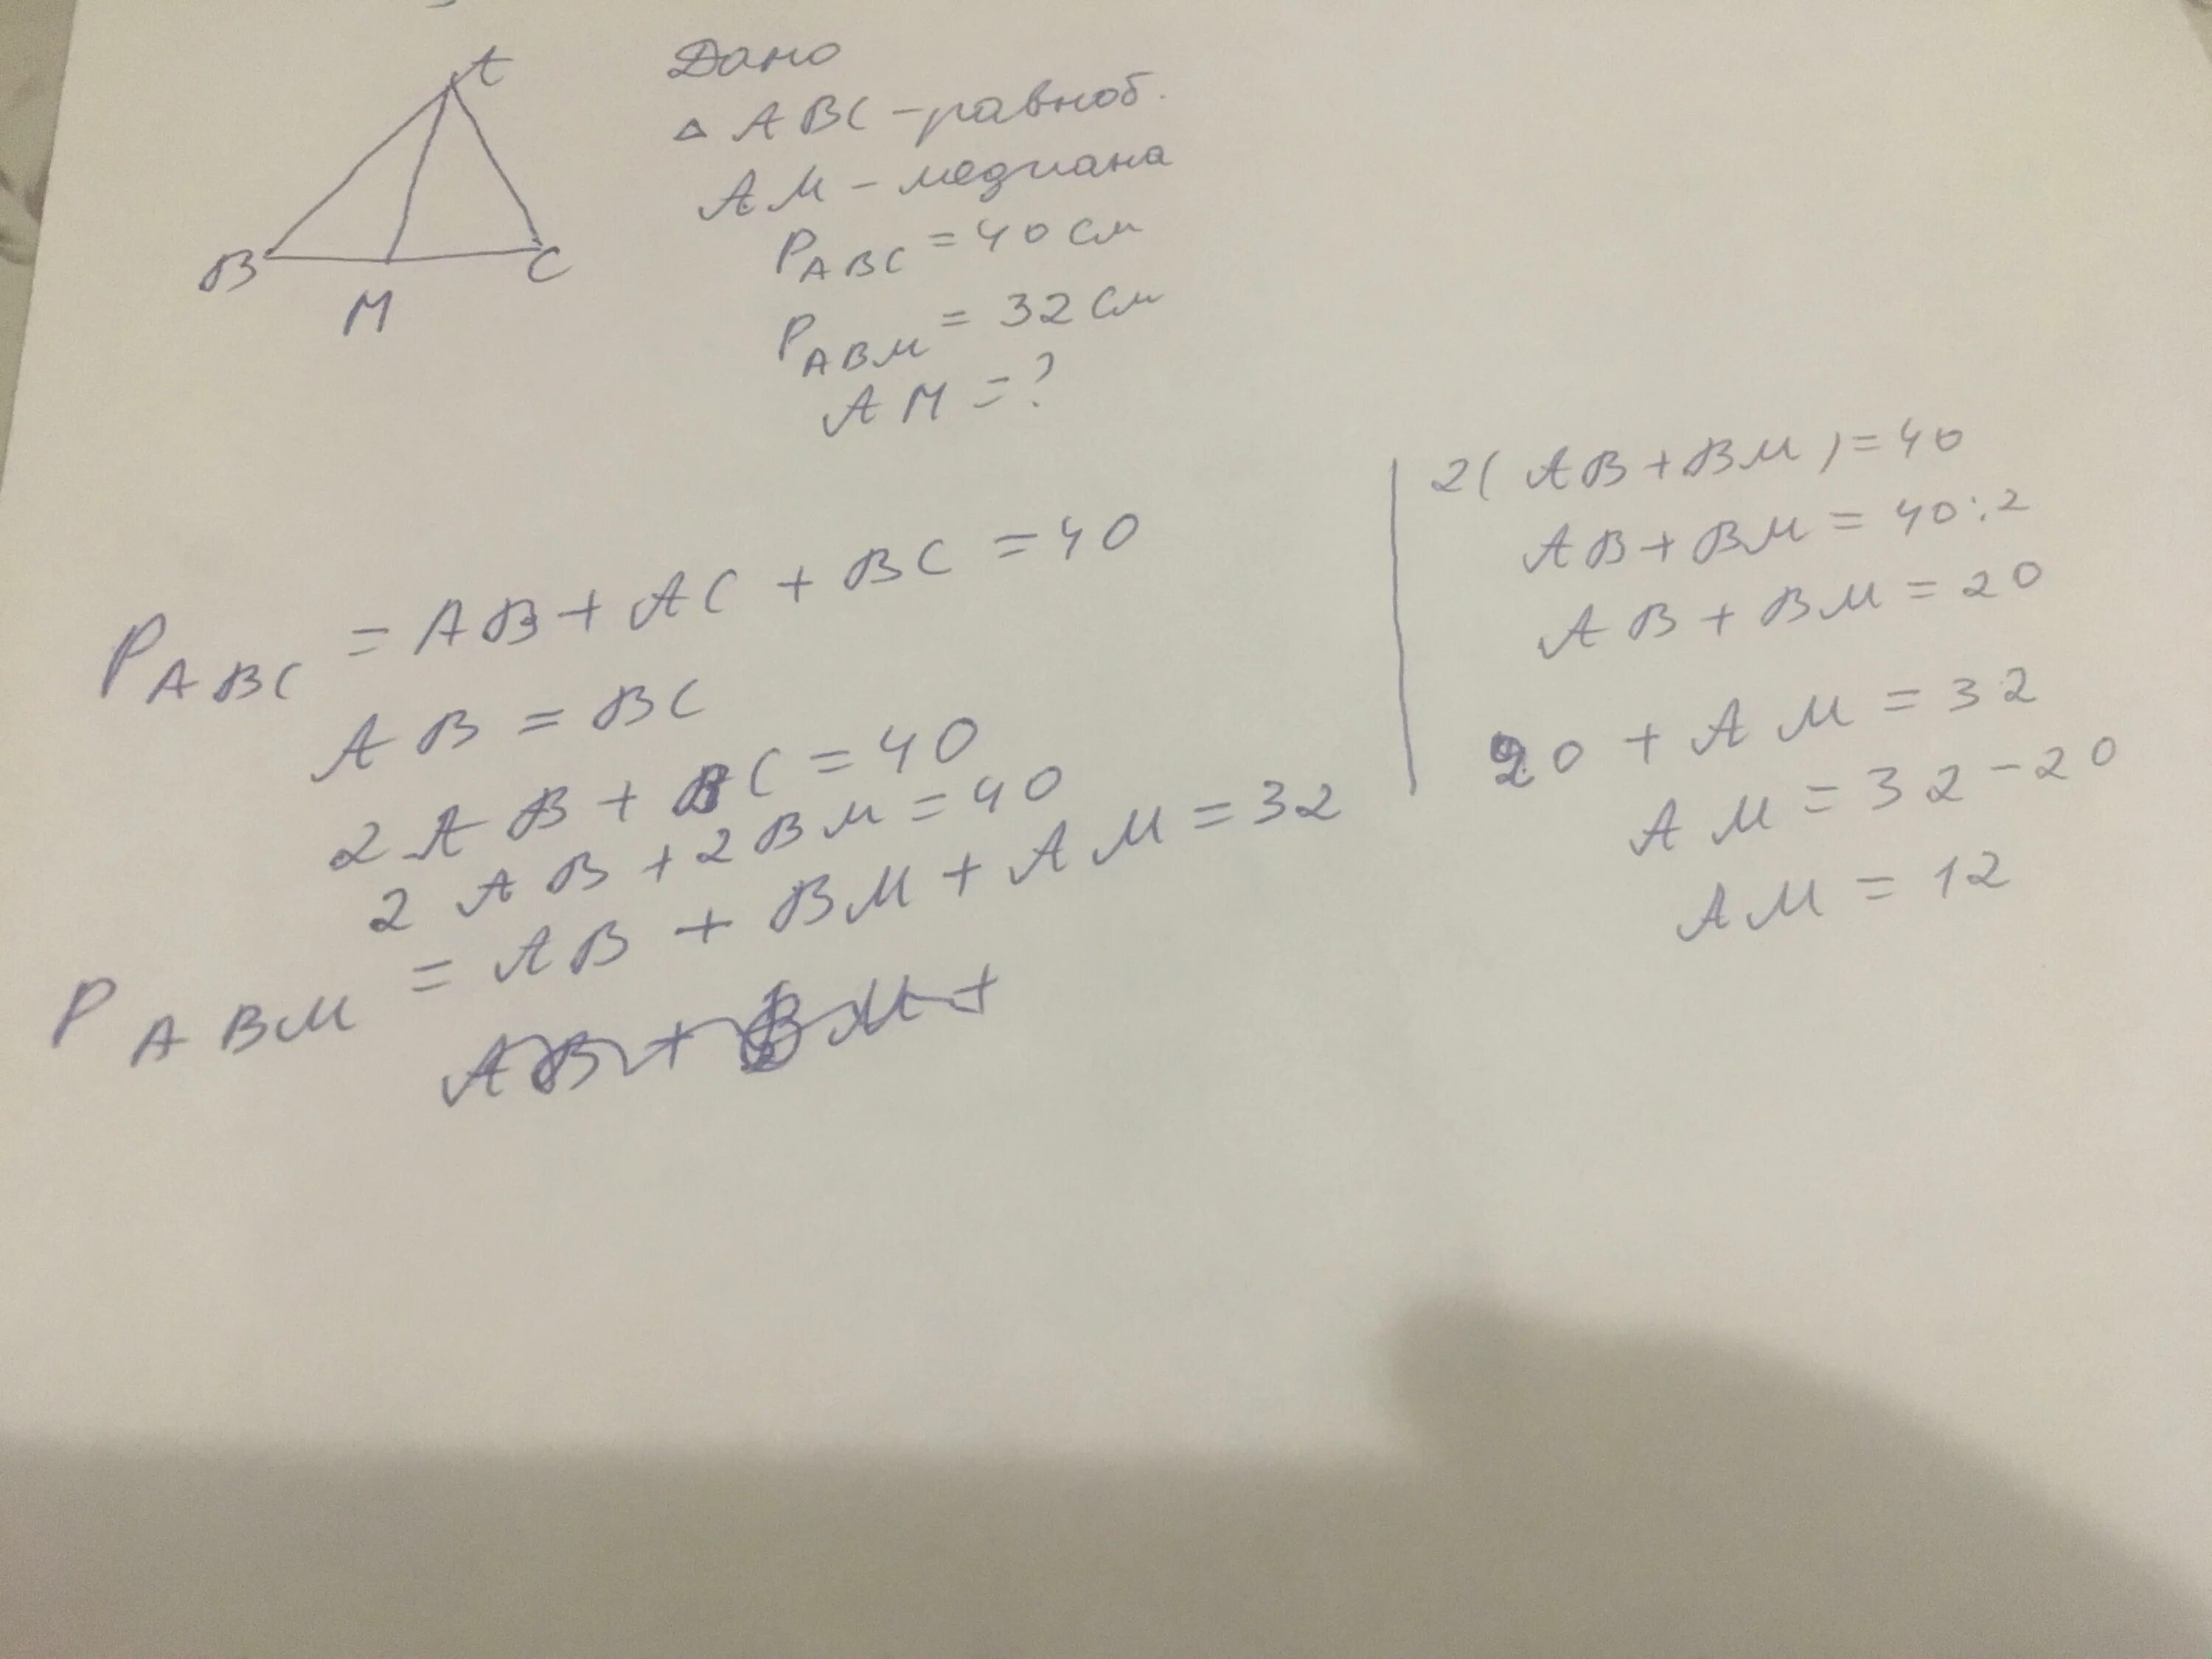 A
B
C
M
Дано
△ ABC - равноб.
AM - медиана
P ABC = 40 см
P ABM = 32 см
AM = ?
P ABC = AB + AC + BC = 40
AB = BC
2 AB + BC = 40
2 AB + 2 BM = 40
P ABM = AB + BM + AM = 32
AB + BM +
2 ( AB + BM ) = 40
AB + BM = 40 : 2
AB + BM = 20
20 + AM = 32
AM = 32 - 20
AM = 12